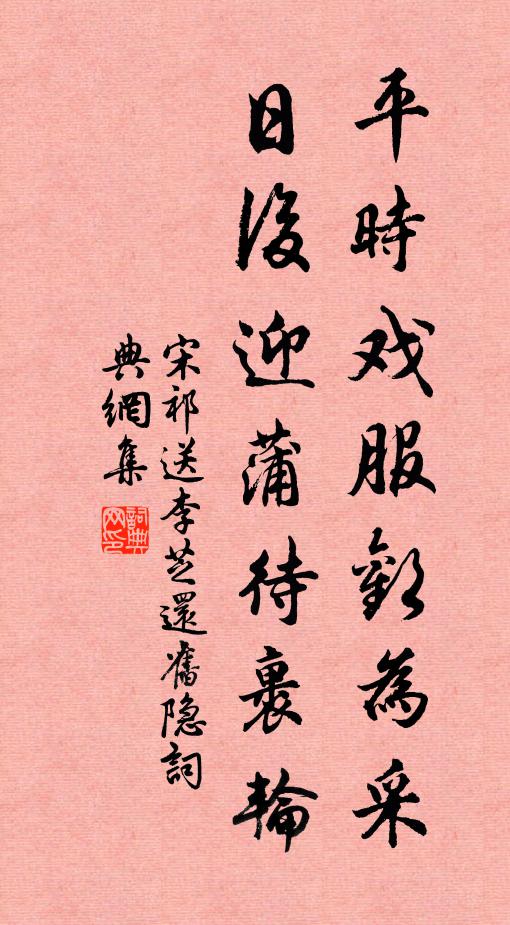 平時戏服歡為采
日後迎蒲待裹輪
宋祁送李芝還舊隐詞
典網集
詞典网印